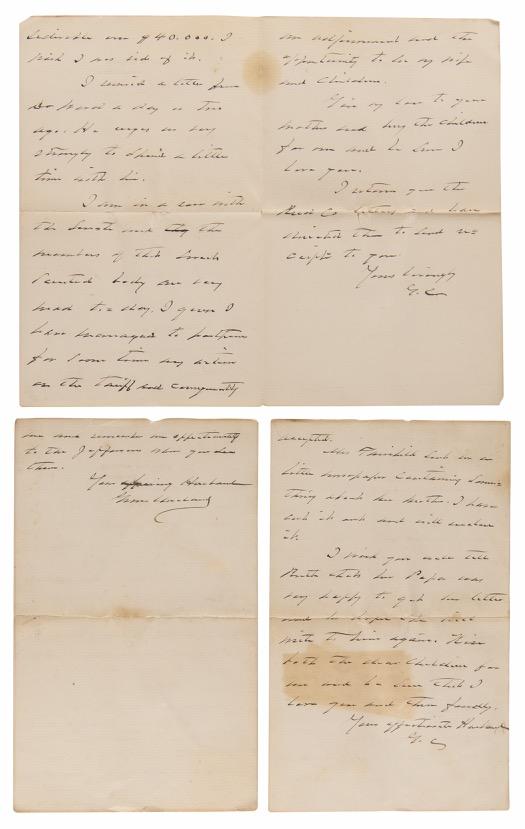 over $40.000. I
I was rid of it.
I received a letter from
Dr Ward a day or two
ago. He urges us very
strongly to spend a little
time with him.
I am in a row with
the Senate and the
members of that
body are very
mad to-day. I guess I
have managed to postpone
for some time any action
on the Tariff and consequently
an adjournment and the
opportunity to see my wife
and children.
Give my love to your
mother and kiss the children
for me and be sure I
love you.
I return you the
letters and have
directed them to send re=
ceipts to you
Yours lovingly
G. C.
me and remember me affectionately
to the Jeffersons when you see
them.
Your Husband
Grover Cleveland
accepted.
Mrs Fairchild sent me a
little newspaper containing some-
thing about her . I have
cut it out and will enclose
it.
I wish you would tell
Ruth that her Papa was
very happy to get her letter
and to hope she will
write to him again. Kiss
both the dear children for
me and be sure that I
love you and them fondly.
Your affectionate Husband
G. C.